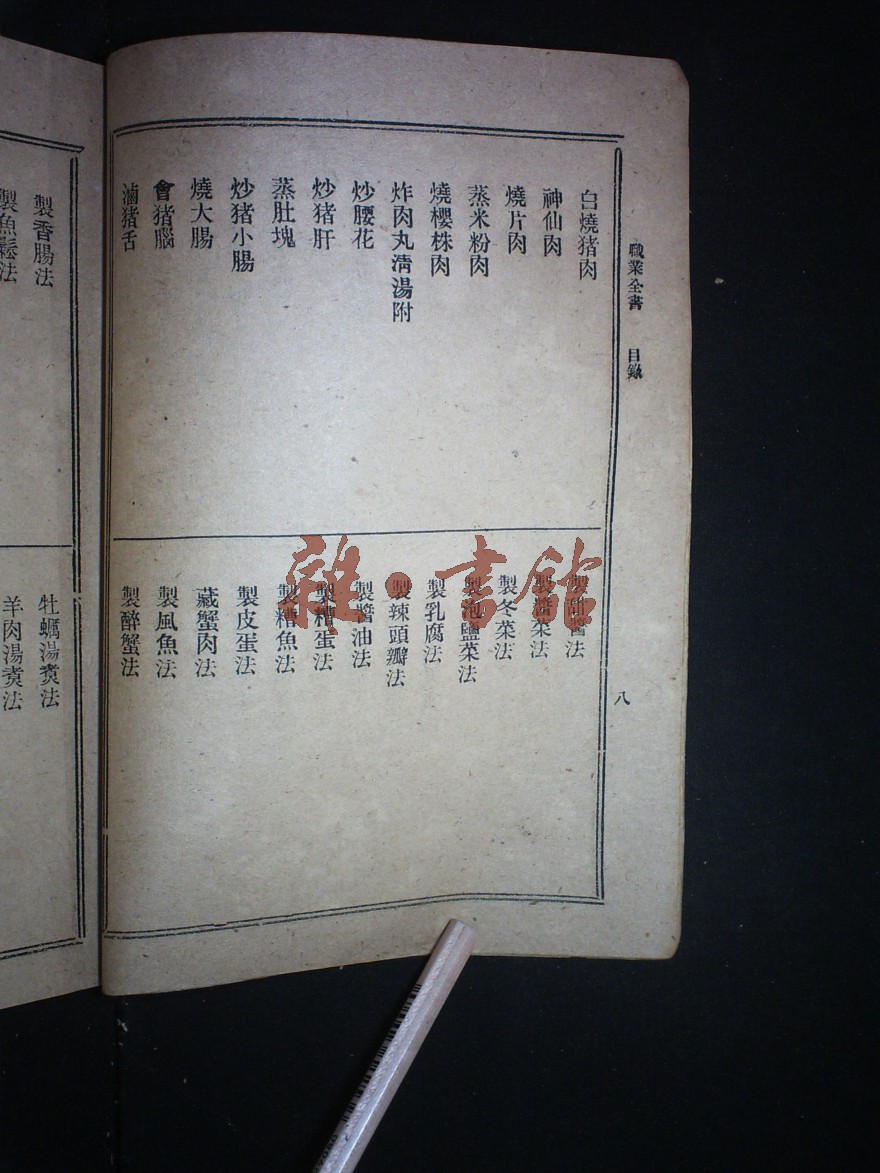 職業全書 目錄
八
白燒猪肉
神仙肉
燒片肉
蒸米粉肉
燒櫻株肉
炸肉丸淸湯附
炒腰花
炒猪肝
蒸肚塊
炒猪小腸
燒大腸
會猪腦
滷猪舌
製醬法
製醬菜法
製冬菜法
製泡鹽菜法
製乳腐法
製辣頭瓣法
製醬油法
製糟蛋法
製糟魚法
製皮蛋法
藏蟹肉法
製風魚法
製醉蟹法
製香腸法
製魚鬆法
牡蠣湯煑法
羊肉湯煑法
雜·書館